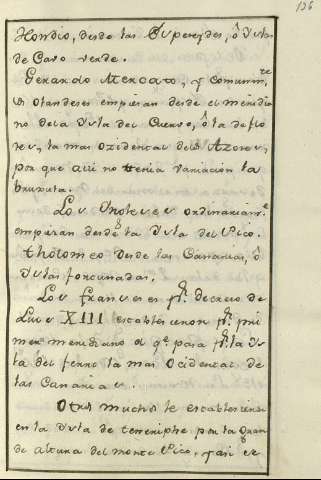 136
Hondio, desde las Esperides, ô Islas
de Cavo verde.
Gerardo Mercato, y comunm.te
los olandeses empiesan desde el meridia
no de la Isla del Cuervo, ô la de flo
res, la mas oxidental delas Azores,
por que alli no tenia variacion la
bruxula.
Los Ingleses ordinariam.te
empiesan desde la Isla del Pico.
tholomeo desde las Canarias, ô
Islas fortunadas.
Los franceses pr. decreto de
Luis XIII establecieron pr. pri
mer meridiano el qe. pasa pr. la Is
la del fierro la mas Ocidental de
las Canarias.
Otros muchos le establecieron
en la Isla de tenerriphe por la gran
de altura del monte Pico, y asi se